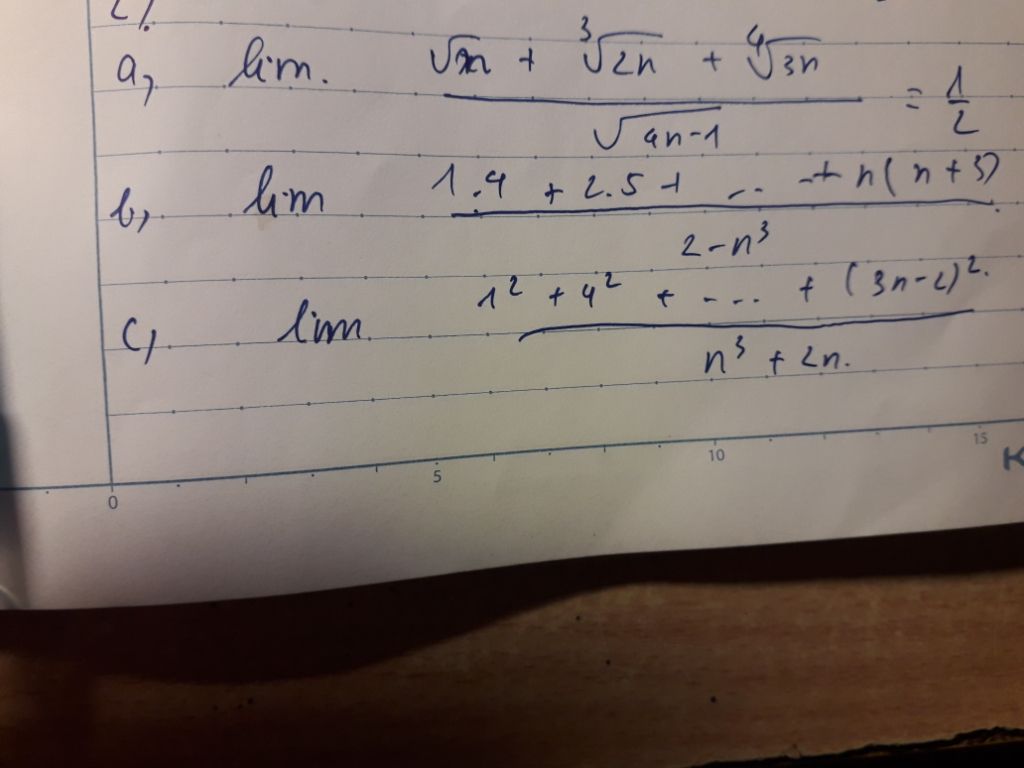 2).
a, lim. (√n + ∛2n + ∜3n) / √4n-1 = 1/2
b, lim (1.4 + 2.5 + .. + n(n+3)) / (2-n³)
c, lim. (1² + 4² + .... + (3n-2)².) / (n³ + 2n.)
0 5 10 15
K